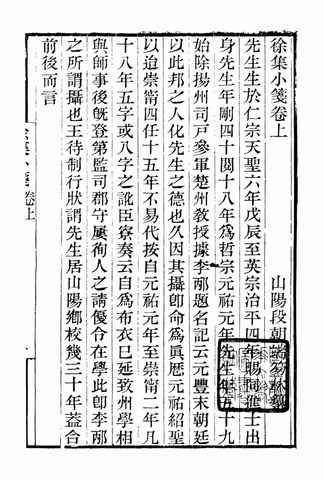 徐集小箋卷上
山陽段朝端笏林纂
先生生於仁宗天聖六年戊辰至英宗治平四年賜同進士出
身先生年剛四十閱十八年爲哲宗元祐元年先生年五十九
始除揚州司戶參軍楚州教授據李郙題名記云元豐末朝廷
以此邦之人化先生之德也久因其攝卽命爲眞歷元祐紹聖
以迨崇甯四任十五年不易代按自元祐元年至崇甯二年凡
十八年五字或八字之訛臣寮奏云自爲布衣已延致州學相
與師事後旣登第監司郡守屢徇人之請優令在學此卽李郙
之所謂攝也王待制行狀謂先生居山陽鄉校幾三十年蓋合
前後而言
卷上